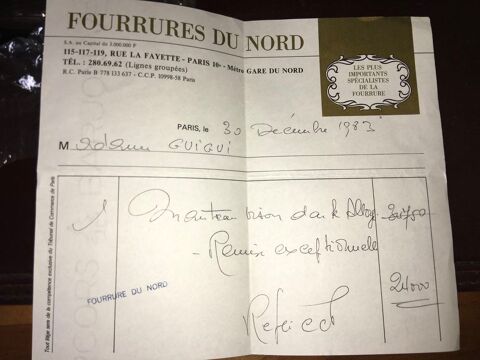 FOURRURES DU NORD
S.A. au Capital de 3.000.000 F
115-117-119, RUE LA FAYETTE - PARIS 10e - Métro GARE DU NORD
TÉL. : 280.69.62 (Lignes groupées)
R.C. Paris B 778 133 637 - C.C.P. 10998-58 Paris
LES PLUS
IMPORTANTS
SPÉCIALISTES
DE LA
FOURRURE
PARIS, le 30 Décembre 1983
M adame GUIGUI
1 Manteau vison dark
- Remise exceptionnelle
24000
FOURRURE DU NORD
Tout litige sera de la compétence exclusive du Tribunal de Commerce de Paris